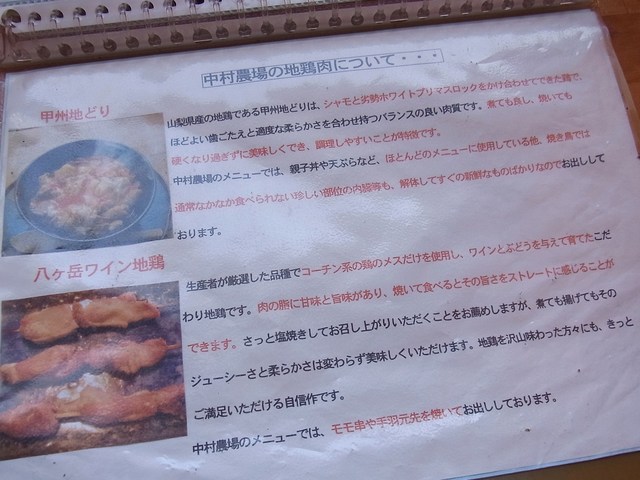 中村農場の地鶏肉について・・・
甲州地どり
山梨県産の地鶏である甲州地どりは、シャモと劣勢ホワイトプリマスロックをかけ合わせてできた鶏で、
ほどよい歯ごたえと適度な柔らかさを合わせ持つバランスの良い肉質です。煮ても良し、焼いても
硬くなり過ぎずに美味しくでき、調理しやすいことが特徴です。
中村農場のメニューでは、親子丼や天ぷらなど、ほとんどのメニューに使用している他、焼き鳥では
通常なかなか食べられない珍しい部位の内臓等も、解体してすぐの新鮮なものばかりなのでお出しして
おります。
八ヶ岳ワイン地鶏
生産者が厳選した品種でコーチン系の鶏のメスだけを使用し、ワインとぶどうを与えて育てたこだ
わり地鶏です。肉の脂に甘味と旨味があり、焼いて食べるとその旨さをストレートに感じることが
できます。さっと塩焼きしてお召し上がりいただくことをお薦めしますが、煮ても揚げてもその
ジューシーさと柔らかさは変わらず美味しくいただけます。地鶏を沢山味わった方々にも、きっと
ご満足いただける自信作です。
中村農場のメニューでは、モモ串や手羽元先を焼いてお出ししております。